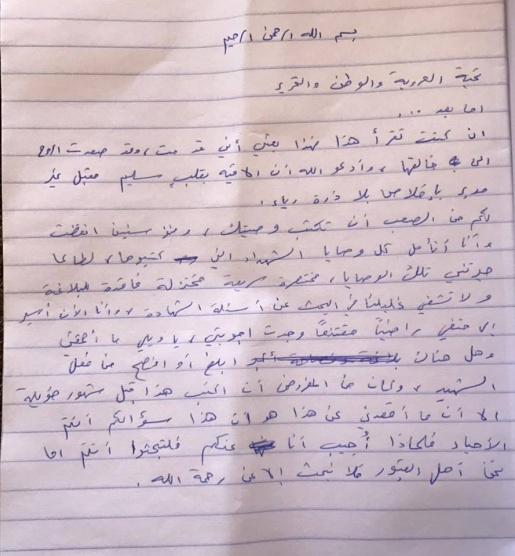 بسم الله الرحمن الرحيم
تحية العروبة والوطن والتحرير
اما بعد ...
ان كنت تقرأ هذا فهذا يعني أني قد مت، وقد صعدت الروح
الى خالقها، وأدعو الله أن ألاقيه بقلب سليم مقبل غير
مدبر بإخلاص بلا ذرة رياء.
لكم من الصعب أن تكتب وصيتك، ومنذ سنين انقضت
وأنا أتأمل كل وصايا الشهداء التي كتبوها، لطالما
حيرتني تلك الوصايا، مختصرة سريعة مختزلة فاقدة للبلاغة
ولا تشفي غليلنا في البحث عن أسئلة الشهادة، وأنا الآن أسير
الى حتفي راضيا مقتنعا وجدت اجوبتي، يا ويلي ما أحمقني
وهل هناك ابلغ أو افصح من فعل
الشهيد، وكان من المفروض أن اكتب هذا قبل شهور طويلة
الا أن ما أقعدني عن هذا هو أن هذا سؤالكم أنتم
الأحياء فلماذا أجيب أنا عنكم فلتبحثوا أنتم اما
نحن أهل القبور فلا نبحث إلا عن رحمة الله.